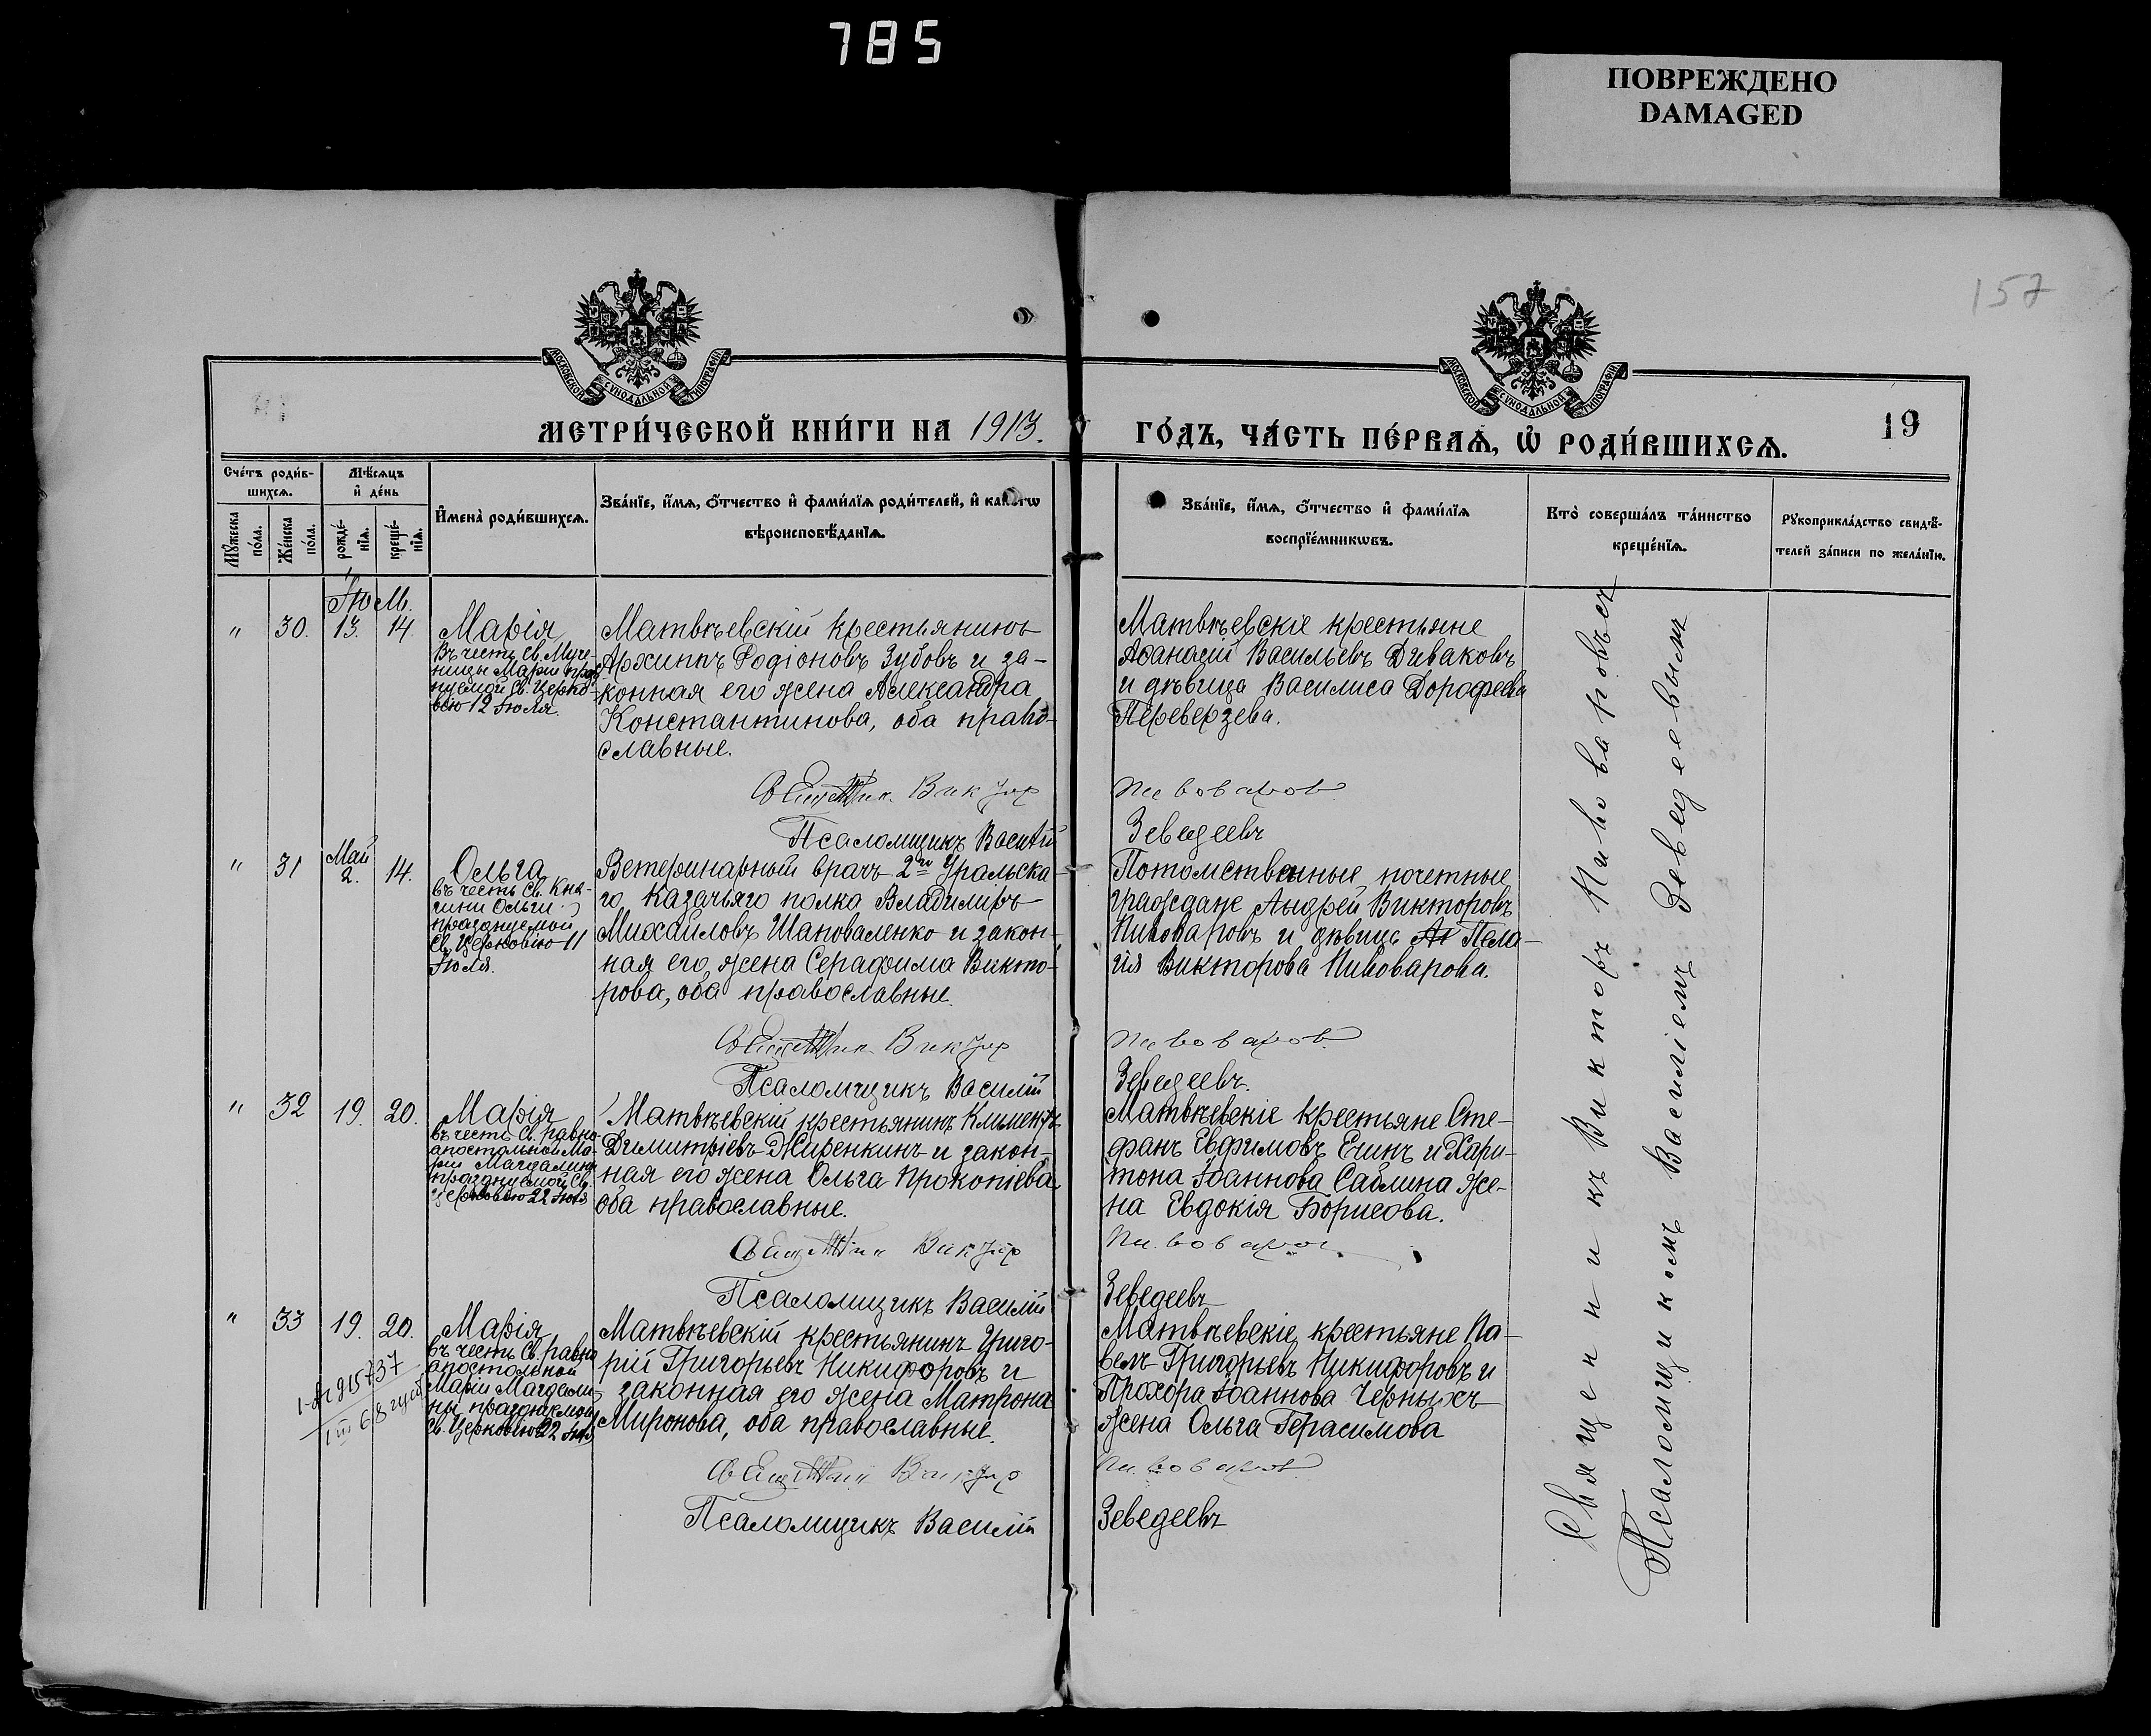 785
ПОВРЕЖДЕНО
DAMAGED
157
МОСКОВСКОЙ СѴНОДАЛЬНОЙ ТИПОГРАФІИ
МОСКОВСКОЙ СѴНОДАЛЬНОЙ ТИПОГРАФІИ
МЕТРИ́ЧЕСКОЙ КНИ́ГИ НА 1913.
ГО́ДЪ, ЧА́СТЬ ПЕ́РВАѦ, Ѡ҆ РОДИ́ВШИХСѦ.
19
Сче́тъ роди́в-
шихсѧ.
Мѣ́сѧцъ
и҆ де́нь
Мꙋ́жеска
по́ла.
Же́нска
по́ла.
рожде́-
нїѧ.
креще́-
нїѧ.
И҆мена̀ роди́вшихсѧ.
Зва́нїе, и҆́мѧ, ѻ҆́тчество и҆ фами́лїѧ роди́телей, и҆ како́гѡ
вѣроисповѣ́данїѧ.
Зва́нїе, и҆́мѧ, ѻ҆́тчество и҆ фами́лїѧ
воспрїе́мникѡвъ.
Кто̀ соверша́лъ та́инство
креще́нїѧ.
Рꙋкоприкла́дство свидѣ́-
телей за́писи по жела́нїю.
Іюль.
" 30. 13. 14.
Марія
Въ честь Св. Муче-
ницы Маріи празд
нуемой Св. Церко-
вью 12 Іюля.
Матвѣевскій крестьянинъ
Архиппъ Родіоновъ Зубовъ и за-
конная его жена Александра
Константинова, оба право-
славные.
Священник Виктор
Псаломщикъ Василій
Матвѣевскіе крестьяне
Аѳанасій Васильевъ Диваковъ
и дѣвица Василиса Дорофеева
Переверзева.
Пивоваров
Зеведеевъ
" 31 Май 2. 14.
Ольга
въ честь Св. Кня-
гини Ольги
празднуемой
Св. Церковію 11
Іюля.
Ветеринарный врачъ 2го Уральска-
го, Казачьяго полка Владиміръ
Михайловъ Шаповаленко и закон-
ная его жена Серафима Викто-
рова, оба православные.
Священник Виктор
Псаломщикъ Василій
Потомственные почетные
граждане Андрей Викторовъ
Пивоваровъ и дѣвица Пела-
гія Викторова Пивоварова.
Пивоваров
Зеведеевъ.
" 32 19. 20.
Марія
въ честь Св. равно-
апостольной Ма-
ріи Магдалины
празднуемой Св.
Церковью 22 Іюля
Матвѣевскій крестьянинъ Климентъ
Димитріевъ Жаренкинъ и закон-
ная его жена Ольга Прокопіева
оба православные.
Священник Виктор
Псаломщикъ Василій
Матвѣевскіе крестьяне Сте-
фанъ Евфимовъ Ечинъ и Хари-
тона Іоаннова Саблина же-
на Евдокія Борисова.
Пивоваров
Зеведеевъ
" 33 19. 20.
Марія
въ честь Св. равно
апостольной
Маріи Магдали-
ны празднуемой
Св. Церковію 22 Іюля
Матвѣевскій крестьянинъ Григо-
рій Григорьевъ Никифоровъ и
законная его жена Матрона
Миронова, оба православные.
Священник Виктор
Псаломщикъ Василій
Матвѣевскіе крестьяне Па-
велъ Григорьевъ Никифоровъ и
Прохора Іоаннова Черныхъ
жена Ольга Герасимова
Пивоваров
Зеведеевъ
Священникъ Викторъ Пивоваровъ съ
Псаломщикомъ Василіемъ Зеведеевымъ